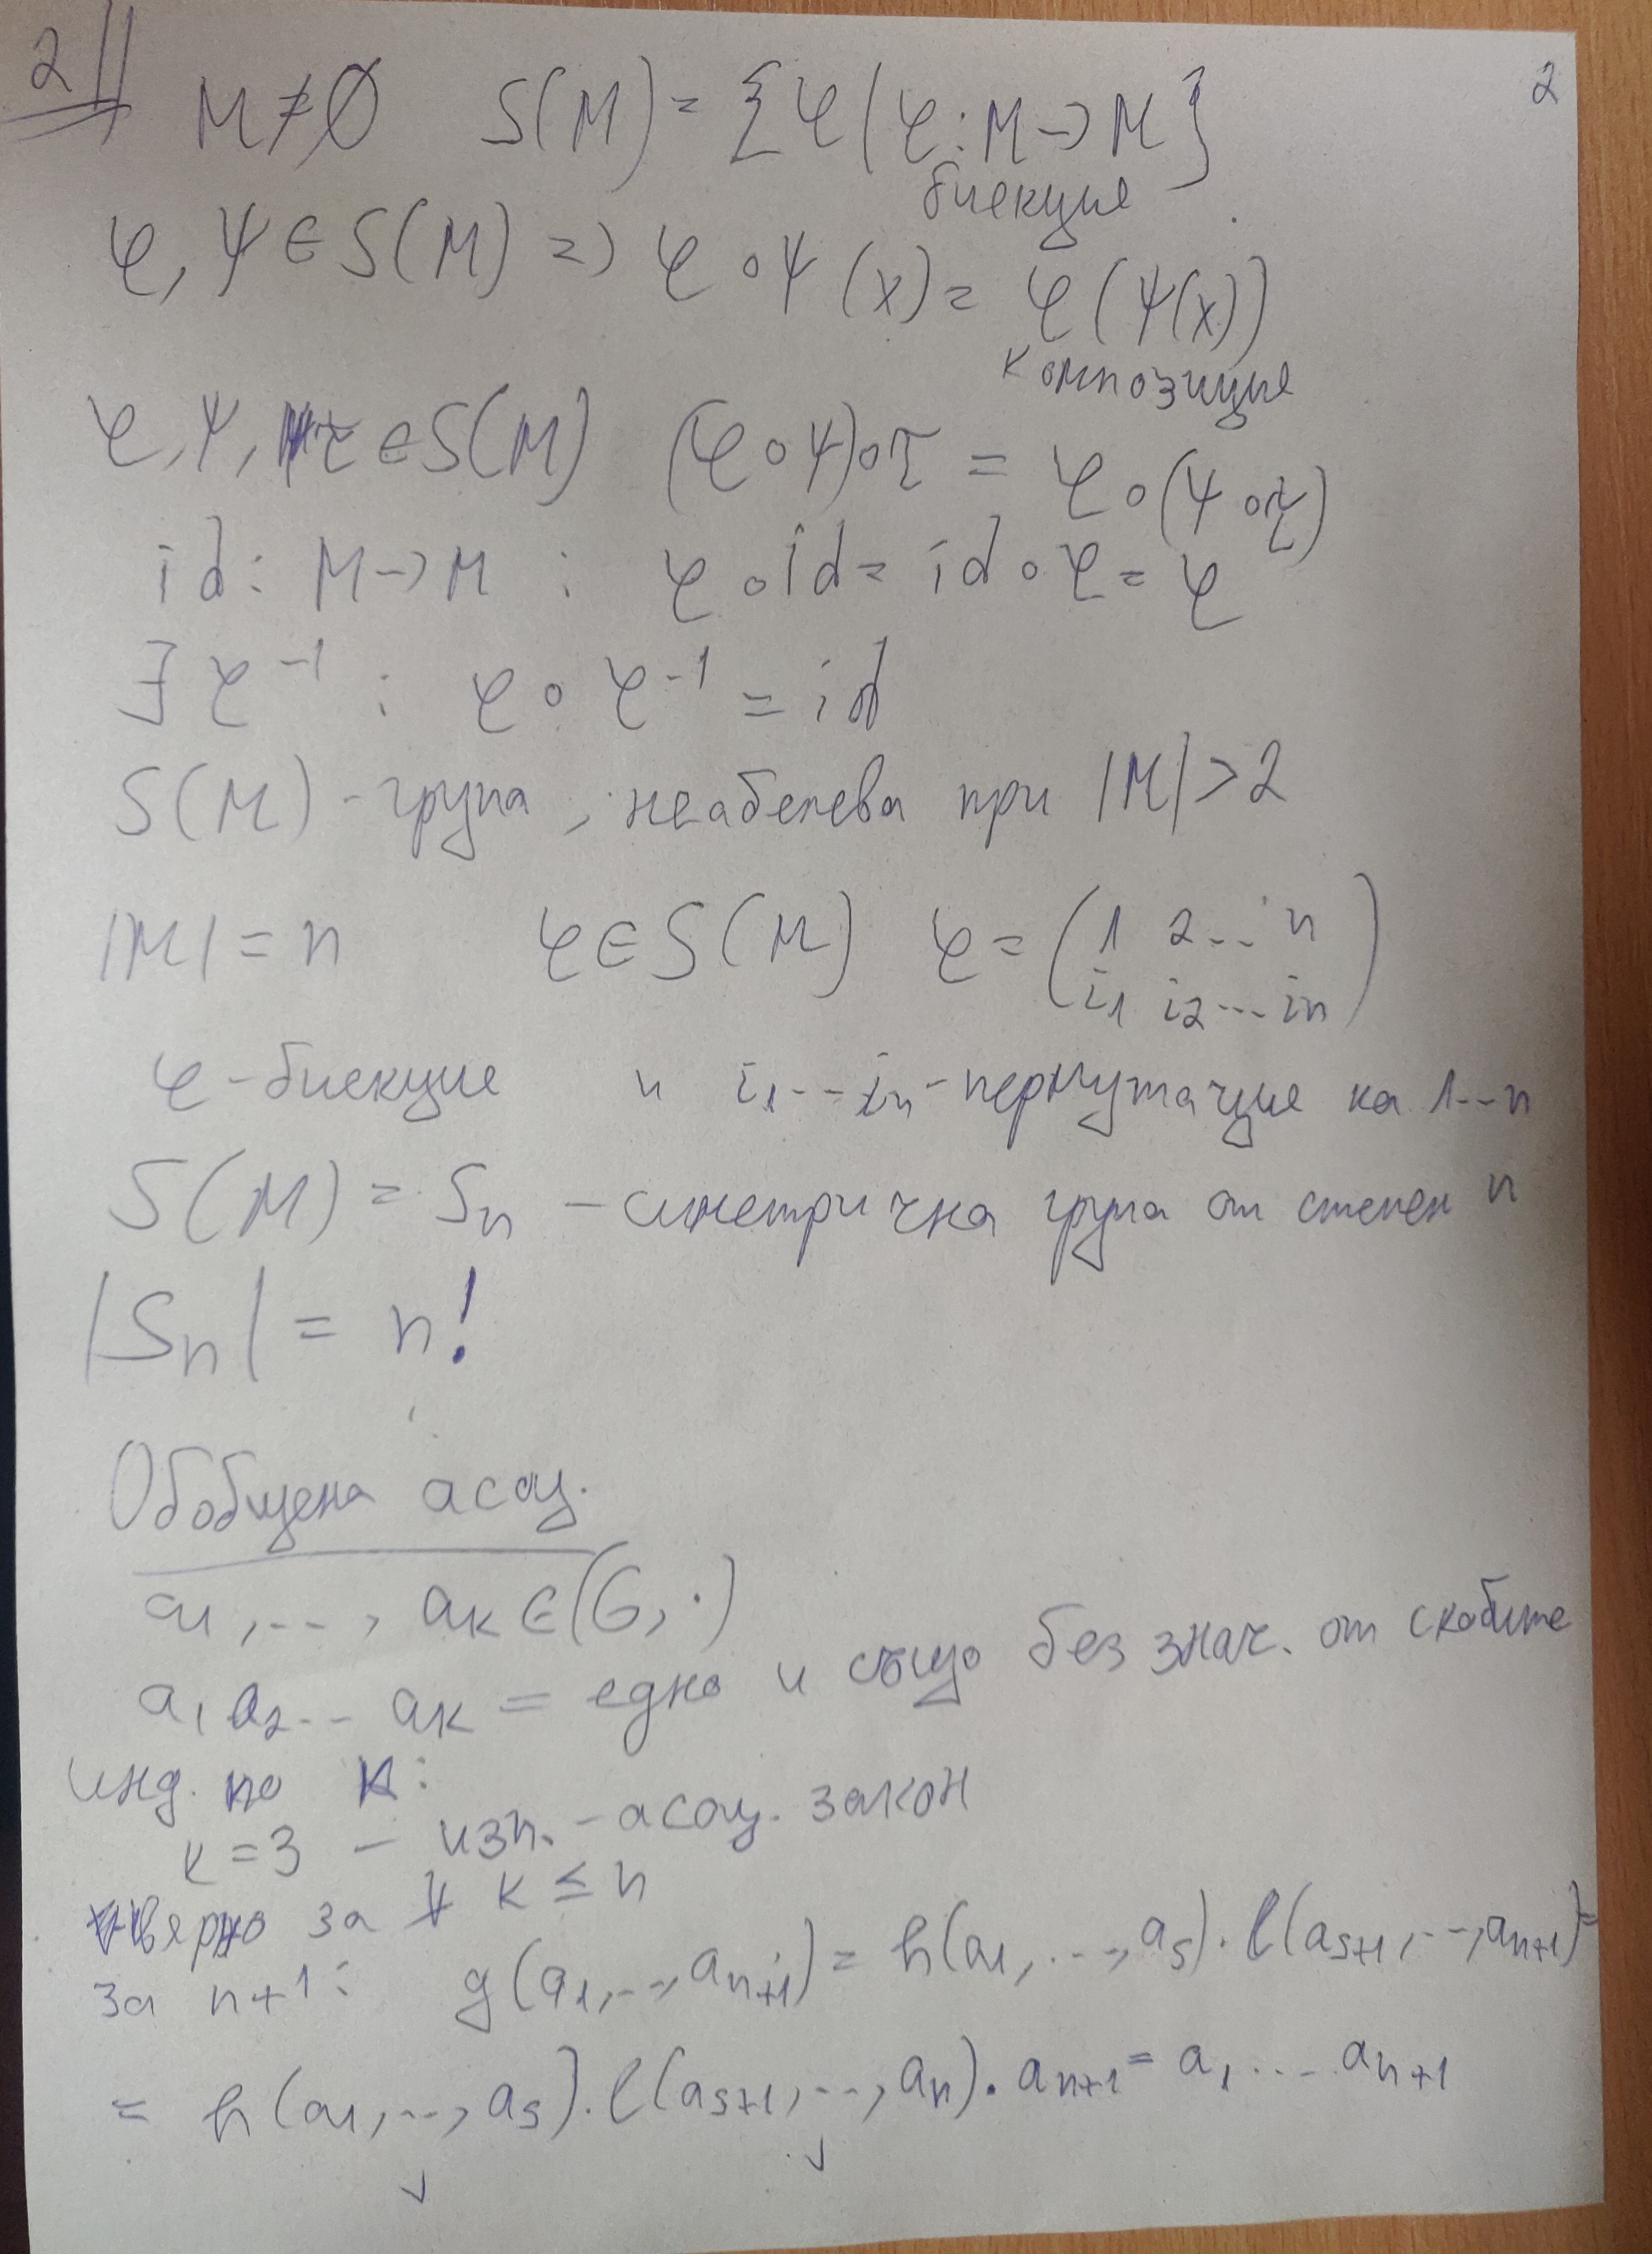 2||
2
M ≠ ∅ S(M) = {φ | φ: M → M}
биекция
φ, ψ ∈ S(M) => φ∘ψ(x) = φ(ψ(x))
композиция
φ, ψ, τ ∈ S(M) (φ∘ψ)∘τ = φ∘(ψ∘τ)
id: M → M : φ∘id = id∘φ = φ
∃ φ⁻¹ : φ∘φ⁻¹ = id
S(M) - група, неабелева при |M| > 2
|M| = n φ ∈ S(M) φ = (1 2 ... n
i₁ i₂ ... iₙ)
φ - биекция и i₁ ... iₙ - пермутация на 1 .. n
S(M) = Sₙ - симетрична група от степен n
|Sₙ| = n!
Обобщена асоц.
a₁, ..., aₖ ∈ (G, ·)
a₁ a₂ ... aₖ = едно и също без знач. от скобите
инд. по k:
k = 3 - изп. - асоц. закон
верно за ∀ k ≤ n
за n+1: g(a₁, ..., aₙ₊₁) = h(a₁, ..., aₛ) · l(aₛ₊₁, ..., aₙ₊₁) =
= h(a₁, ..., aₛ) · l(aₛ₊₁, ..., aₙ) · aₙ₊₁ = a₁ ... aₙ₊₁